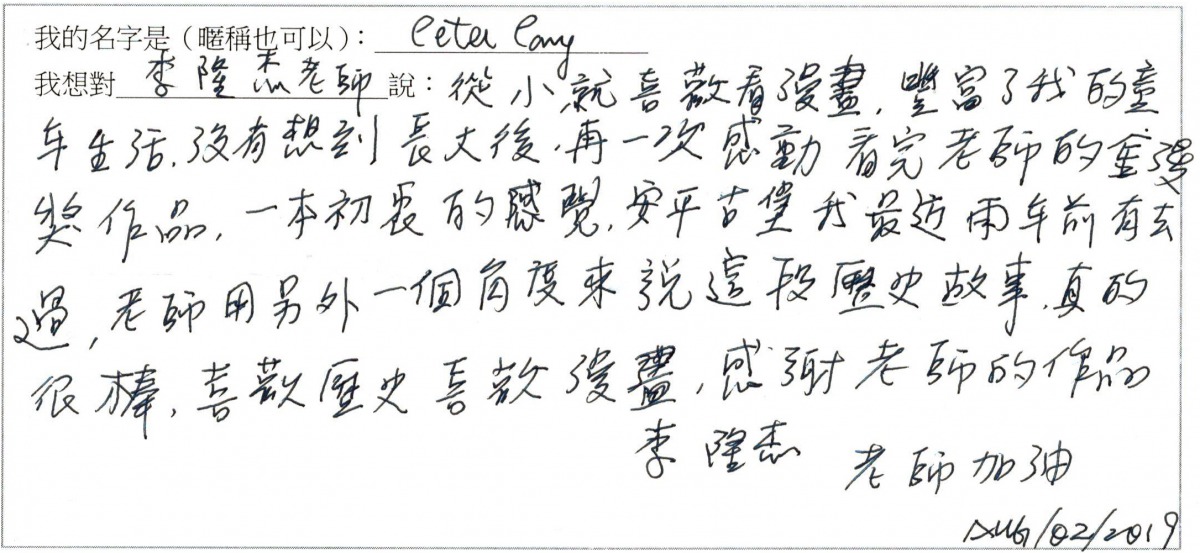 我的名字是（暱稱也可以）：Peter
我想對李隆杰老師說：從小就喜歡看漫畫，豐富了我的童
年生活，沒有想到長大後，再一次感動看完老師的金漫
獎作品，一本初衷的感覺，安平古堡我最近兩年前有去
過，老師用另外一個角度來說這段歷史故事，真的
很棒，喜歡歷史喜歡漫畫，感謝老師的作品
李隆杰 老師加油
AUG/02/2019